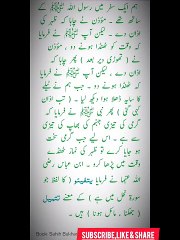 ہم ایک سفر میں رسول اللہ ﷺ کے
ساتھ تھے ۔ مؤذن نے چاہا کہ ظہر کی
اذان دے ۔ لیکن آپ ﷺ نے فرمایا کہ
وقت کو ٹھنڈا ہونے دو ، مؤذن نے
( تھوڑی دیر بعد ) پھر چاہا کہ
اذان دے ، لیکن آپ ﷺ نے فرمایا کہ
ٹھنڈا ہونے دو ۔ جب ہم نے ٹیلے
کا سایہ ڈھلا ہوا دیکھ لیا ۔ ( تب اذان
کہی گئی ) پھر نبی ﷺ نے فرمایا کہ
گرمی کی تیزی جہنم کی بھاپ کی تیزی
سے ہے ۔ اس لیے جب گرمی سخت
ہو جایا کرے تو ظہر کی نماز ٹھنڈے
وقت میں پڑھا کرو ۔ ابن عباس رضی
اللہ عنہما نے فرمایا یتفیئو ( کا لفظ جو
سورۃ نحل میں ہے ) کے معنے یتمیل
( جھکنا ، مائل ہونا ) ہیں ۔
Book Sahih Bukhari
SUBSCRIBE,LIKE & SHARE